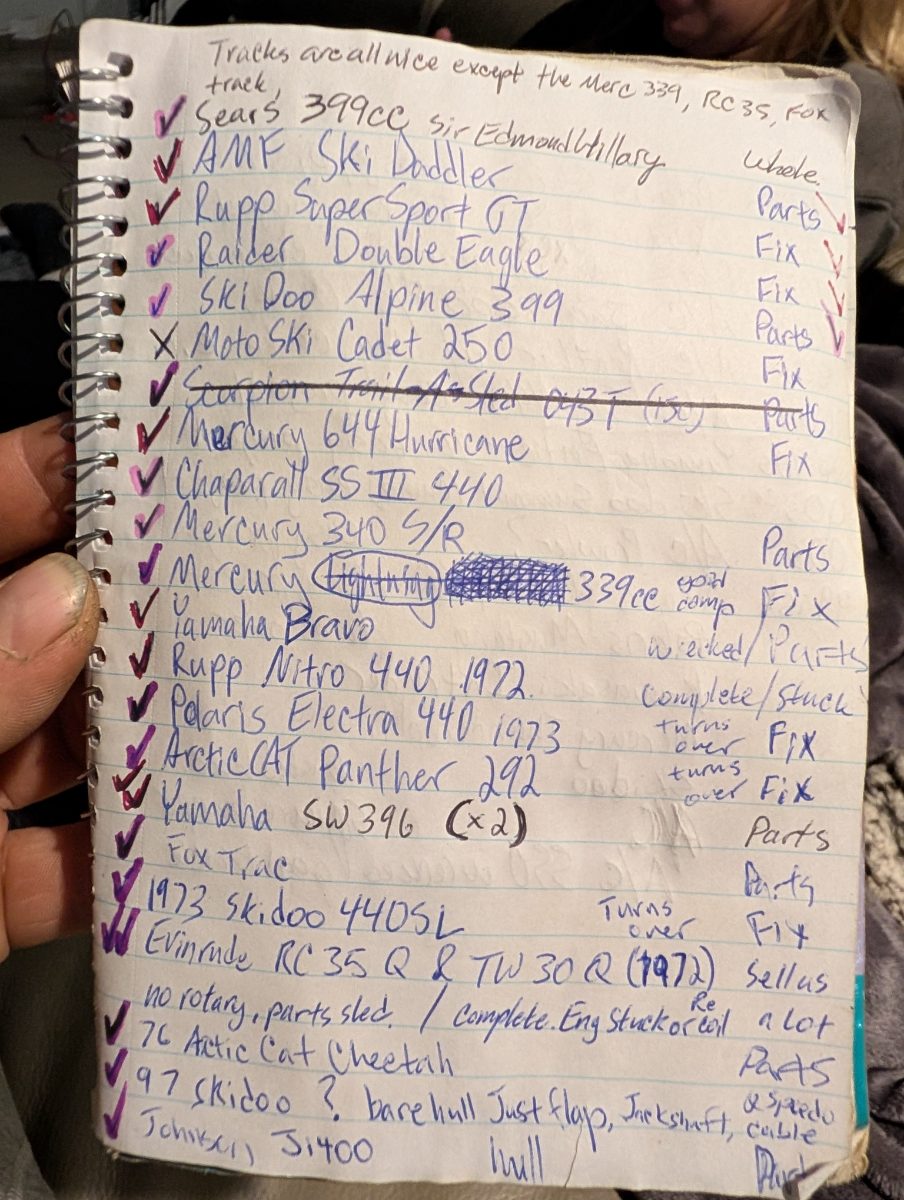 Tracks are all nice except the Merc 339, RC35, Fox
track,
✓ Sears 399cc Sir Edmond Hillary Whole.
✓ AMF Ski Daddler Parts
✓ Rupp Super Sport GT Fix
✓ Raider Double Eagle Fix
✓ Ski Doo Alpine 399 Parts
X Moto Ski Cadet 250 Fix
✓ Scorpion Trail-A-Sled Parts
✓ Mercury 644 Hurricane Fix
✓ Chaparall SS III 440
✓ Mercury 340 S/R Parts
✓ Mercury Lightning 339cc good comp Fix
✓ Yamaha Bravo wrecked/Parts
✓ Rupp Nitro 440 1972. Complete/Stuck
✓ Polaris Electra 440 1973 turns over Fix
✓ Arctic CAT Panther 292 turns over Fix
✓ Yamaha SW396 (x2) Parts
✓ Fox Trac Parts
✓ 1973 Skidoo 440SL Turns over Fix
✓✓ Evinrude RC 35 Q & TW 30 Q (1972) Sell us
no rotary, parts sled. / complete. Eng Stuck or Recoil a lot
✓ 76 Arctic Cat Cheetah Parts
✓ 97 Skidoo ? bare hull Just flap, Jackshaft, & Speedo cable
✓ Johnson Ji400 hull